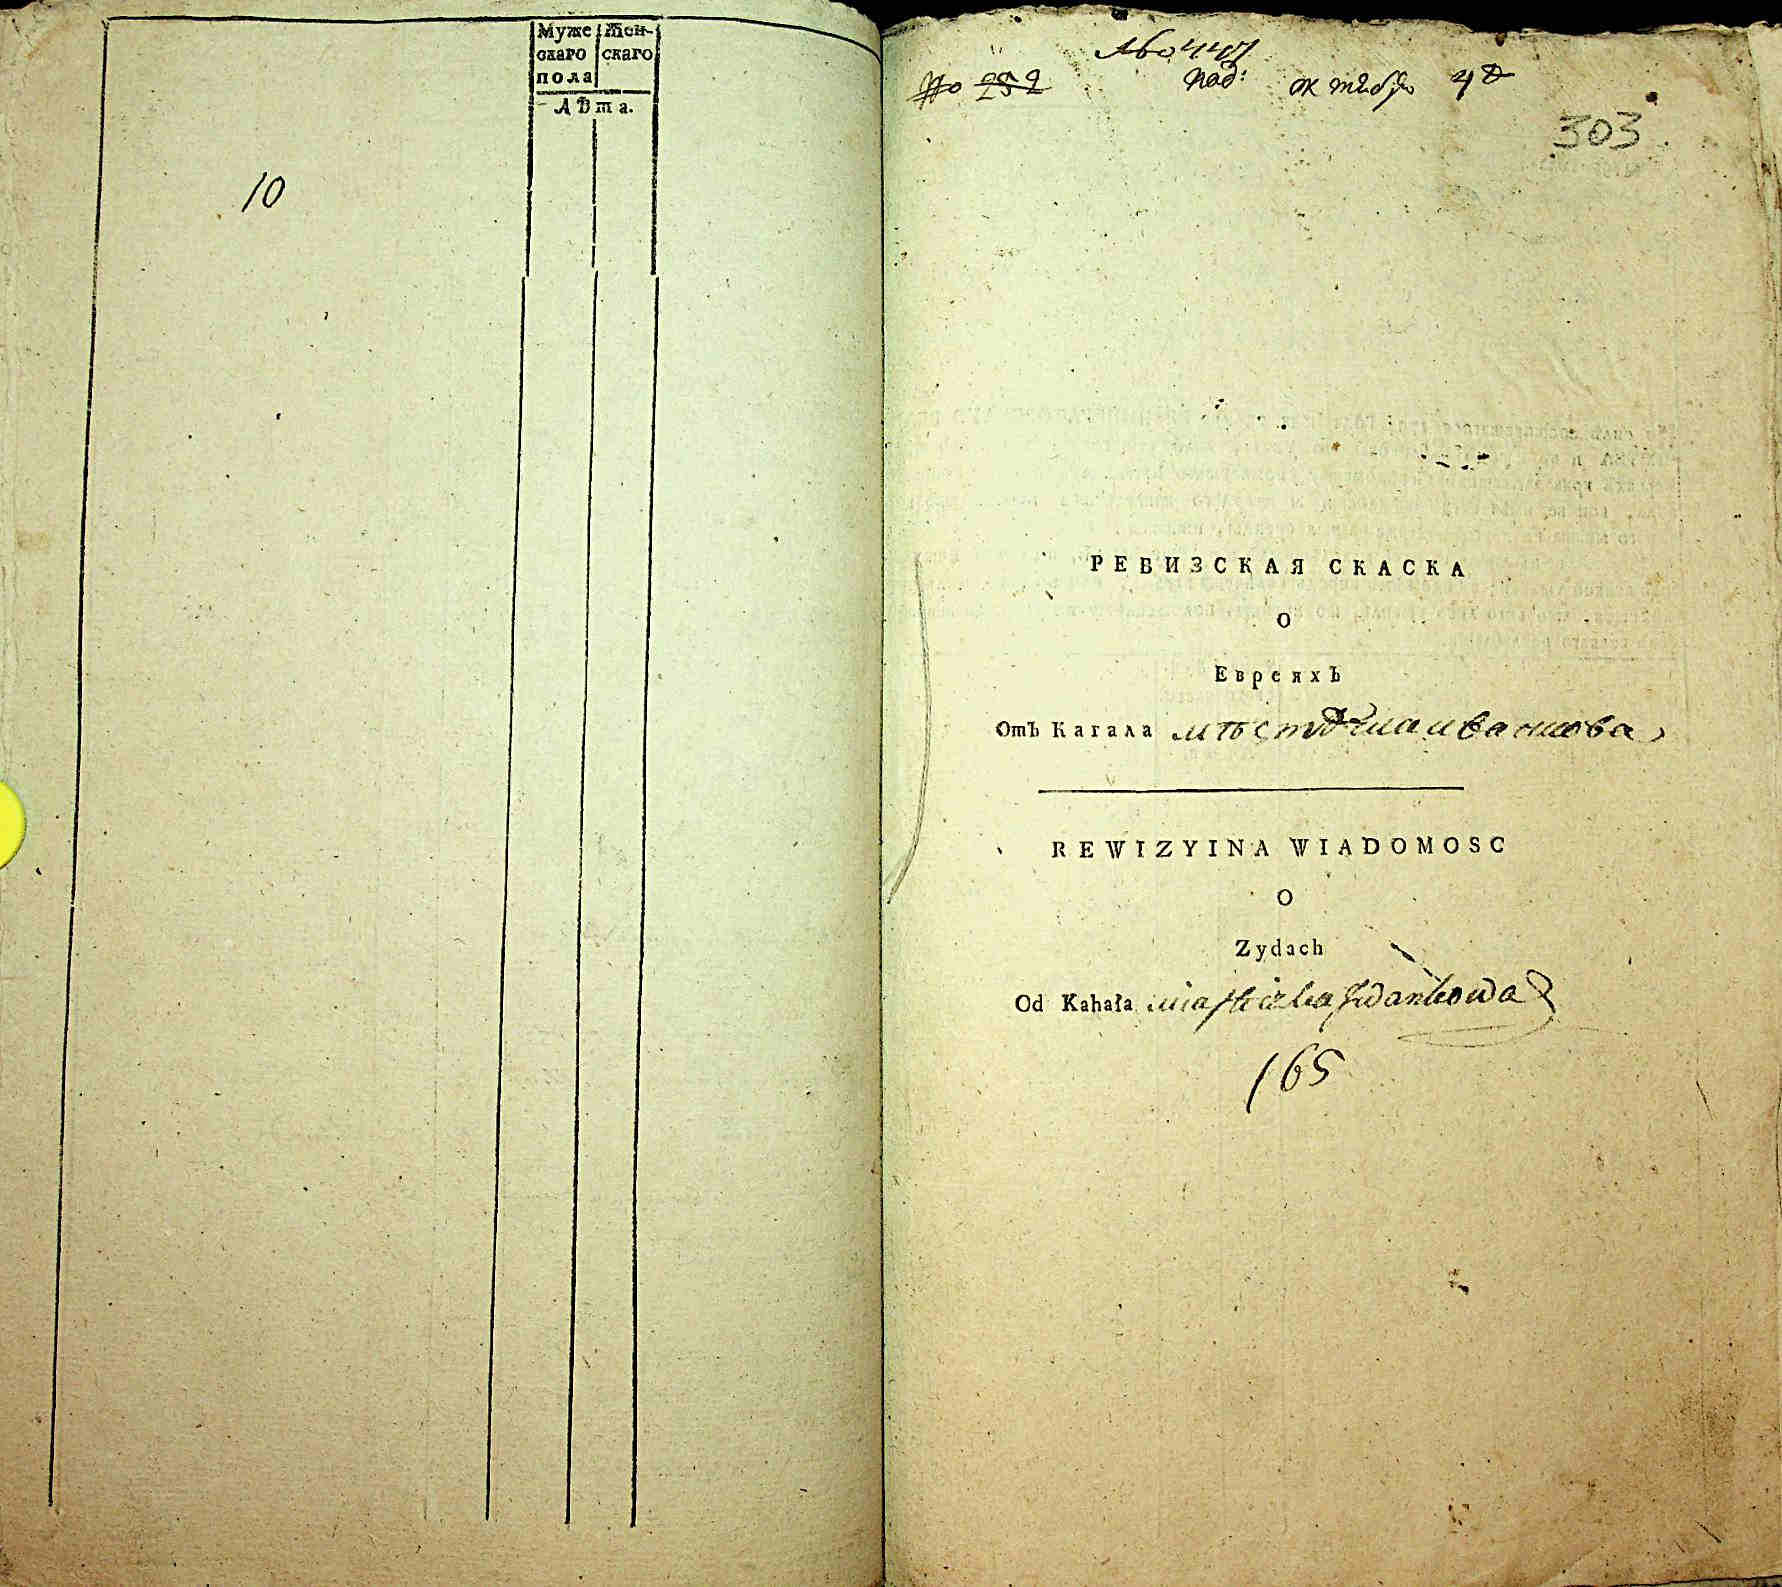 Муже Жен-
скаго скаго
пола
Лѣта.
10
№ 447
№ 252
под: октября 4 д
303
РЕВИЗСКАЯ СКАСКА
О
Евреяхъ
Отъ Кагала мѣстечка иванкова
REWIZYINA WIADOMOSC
O
Zydach
Od Kahała miasteczka Iwankowa
165